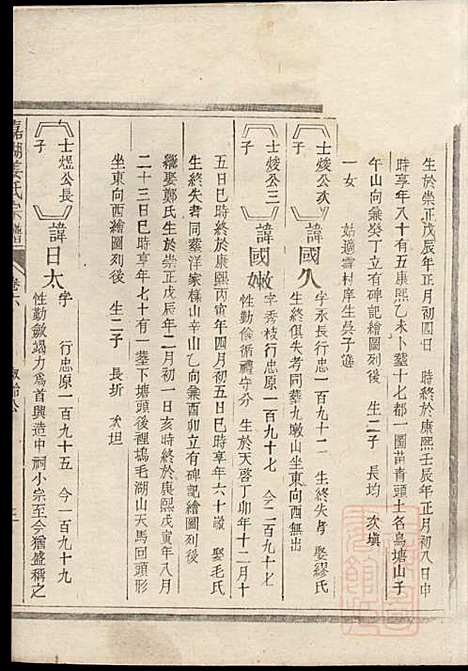 生於崇正戊辰年正月初四日　時終於康熙壬辰年正月初八日中
時享年八十有五康熙乙未卜葬十七都一圖苗青頭土名烏塘山子
午山向兼癸丁立有碑記繪圖列後　生二子　長均　次塡
一女　姑適雲村岸生吳子遜
士焌公次子　諱國久　字永長行忠原一百九十二　生終失考　娶繆氏
生終俱失考同葬九墩山坐東向西無出
士焌公三子　諱國嫩　字秀枝行忠原一百九十七　今二百九十七
性勤儉循禮守分　生於天啓丁卯年十二月十
五日巳時終於康熙丙寅年四月初五日巳時享年六十歲　娶毛氏
生終失考同葬洋家樣山辛山乙向兼酉卯立有碑記繪圖列後
繼娶鄭氏生於崇正戊辰年二月初一日亥時終於康熙戊寅年八月
二十三日巳時享年七十有一葬下塘頭後裡塢毛湖山天馬回頭形
坐東向西繪圖列後　生二子　長圻　次坦
士煜公長子　諱日太　字　行忠原一百九十五　今一百九十九
性勤斂竭力爲首興造中祠小宗至今猶盛稱之
姜氏宗譜　卷六